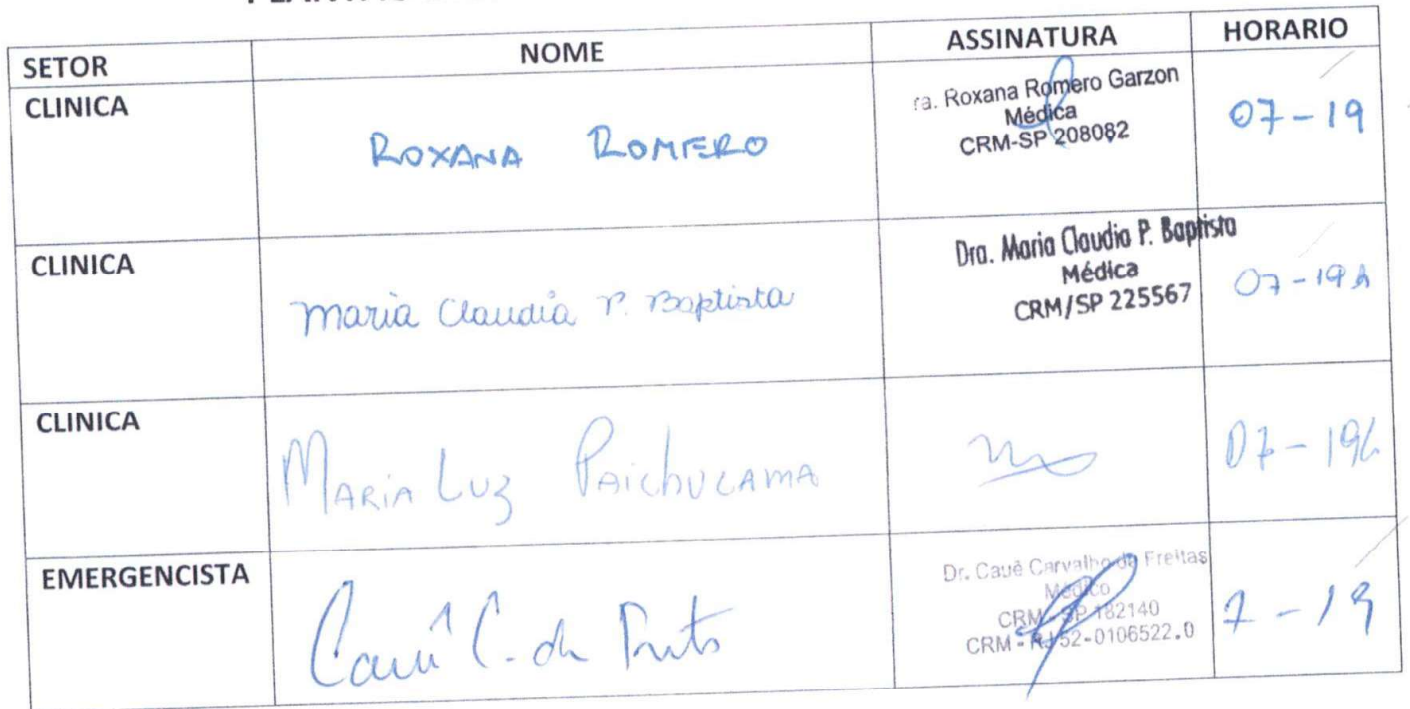 SETOR NOME ASSINATURA HORARIO
CLINICA
ROXANA ROMERO
ra. Roxana Romero Garzon
Médica
CRM-SP 208082
07-19
CLINICA
Maria Claudia P. Baptista
Dra. Maria Claudia P. Baptista
Médica
CRM/SP 225567
07-19h
CLINICA
MARIA LUZ PAICHUCAMA
07-19h
EMERGENCISTA
Cauê C. de
Dr. Cauê Carvalho de Freitas
Médico
CRM - SP 182140
CRM - RJ 52-0106522.0
7-19